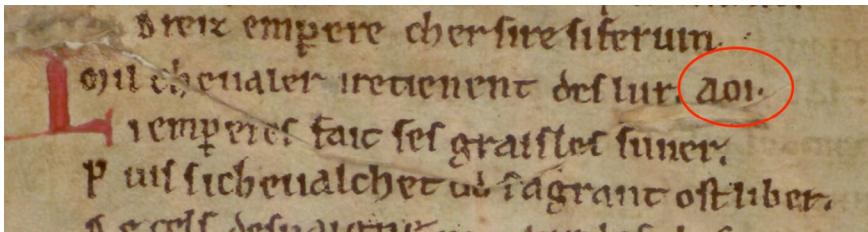 D reiz emꝑere cher sire si ferum.
M il cheualer i retienent des lur. aoi.
L i emꝑeres fait ses graisles suner.
P uis si cheualchet od sa grant ost li ber.
D e cels despaigne